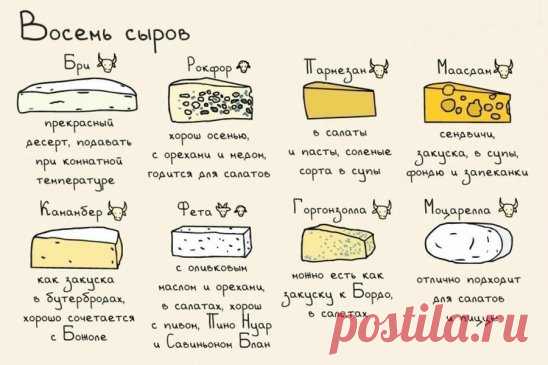 Восемь сыров
Бри
прекрасный
десерт, подавать
при комнатной
температуре
Рокфор
хорош осенью,
с орехами и медом,
годится для салатов
Пармезан
в салаты
и пасты, соленые
сорта в супы
Маасдам
сендвичи,
закуска, в супы,
фондю и запеканки
Камамбер
как закуска
в бутербродах,
хорошо сочетается
с Божоле
Фета
с оливковым
маслом и орехами,
в салатах, хорош
с пивом, Пино Нуар
и Савиньоном Блан
Горгонзолла
можно есть как
закуску к Бордо,
в салатах
Моцарелла
отлично подходит
для салатов
и пиццы
postila.ru